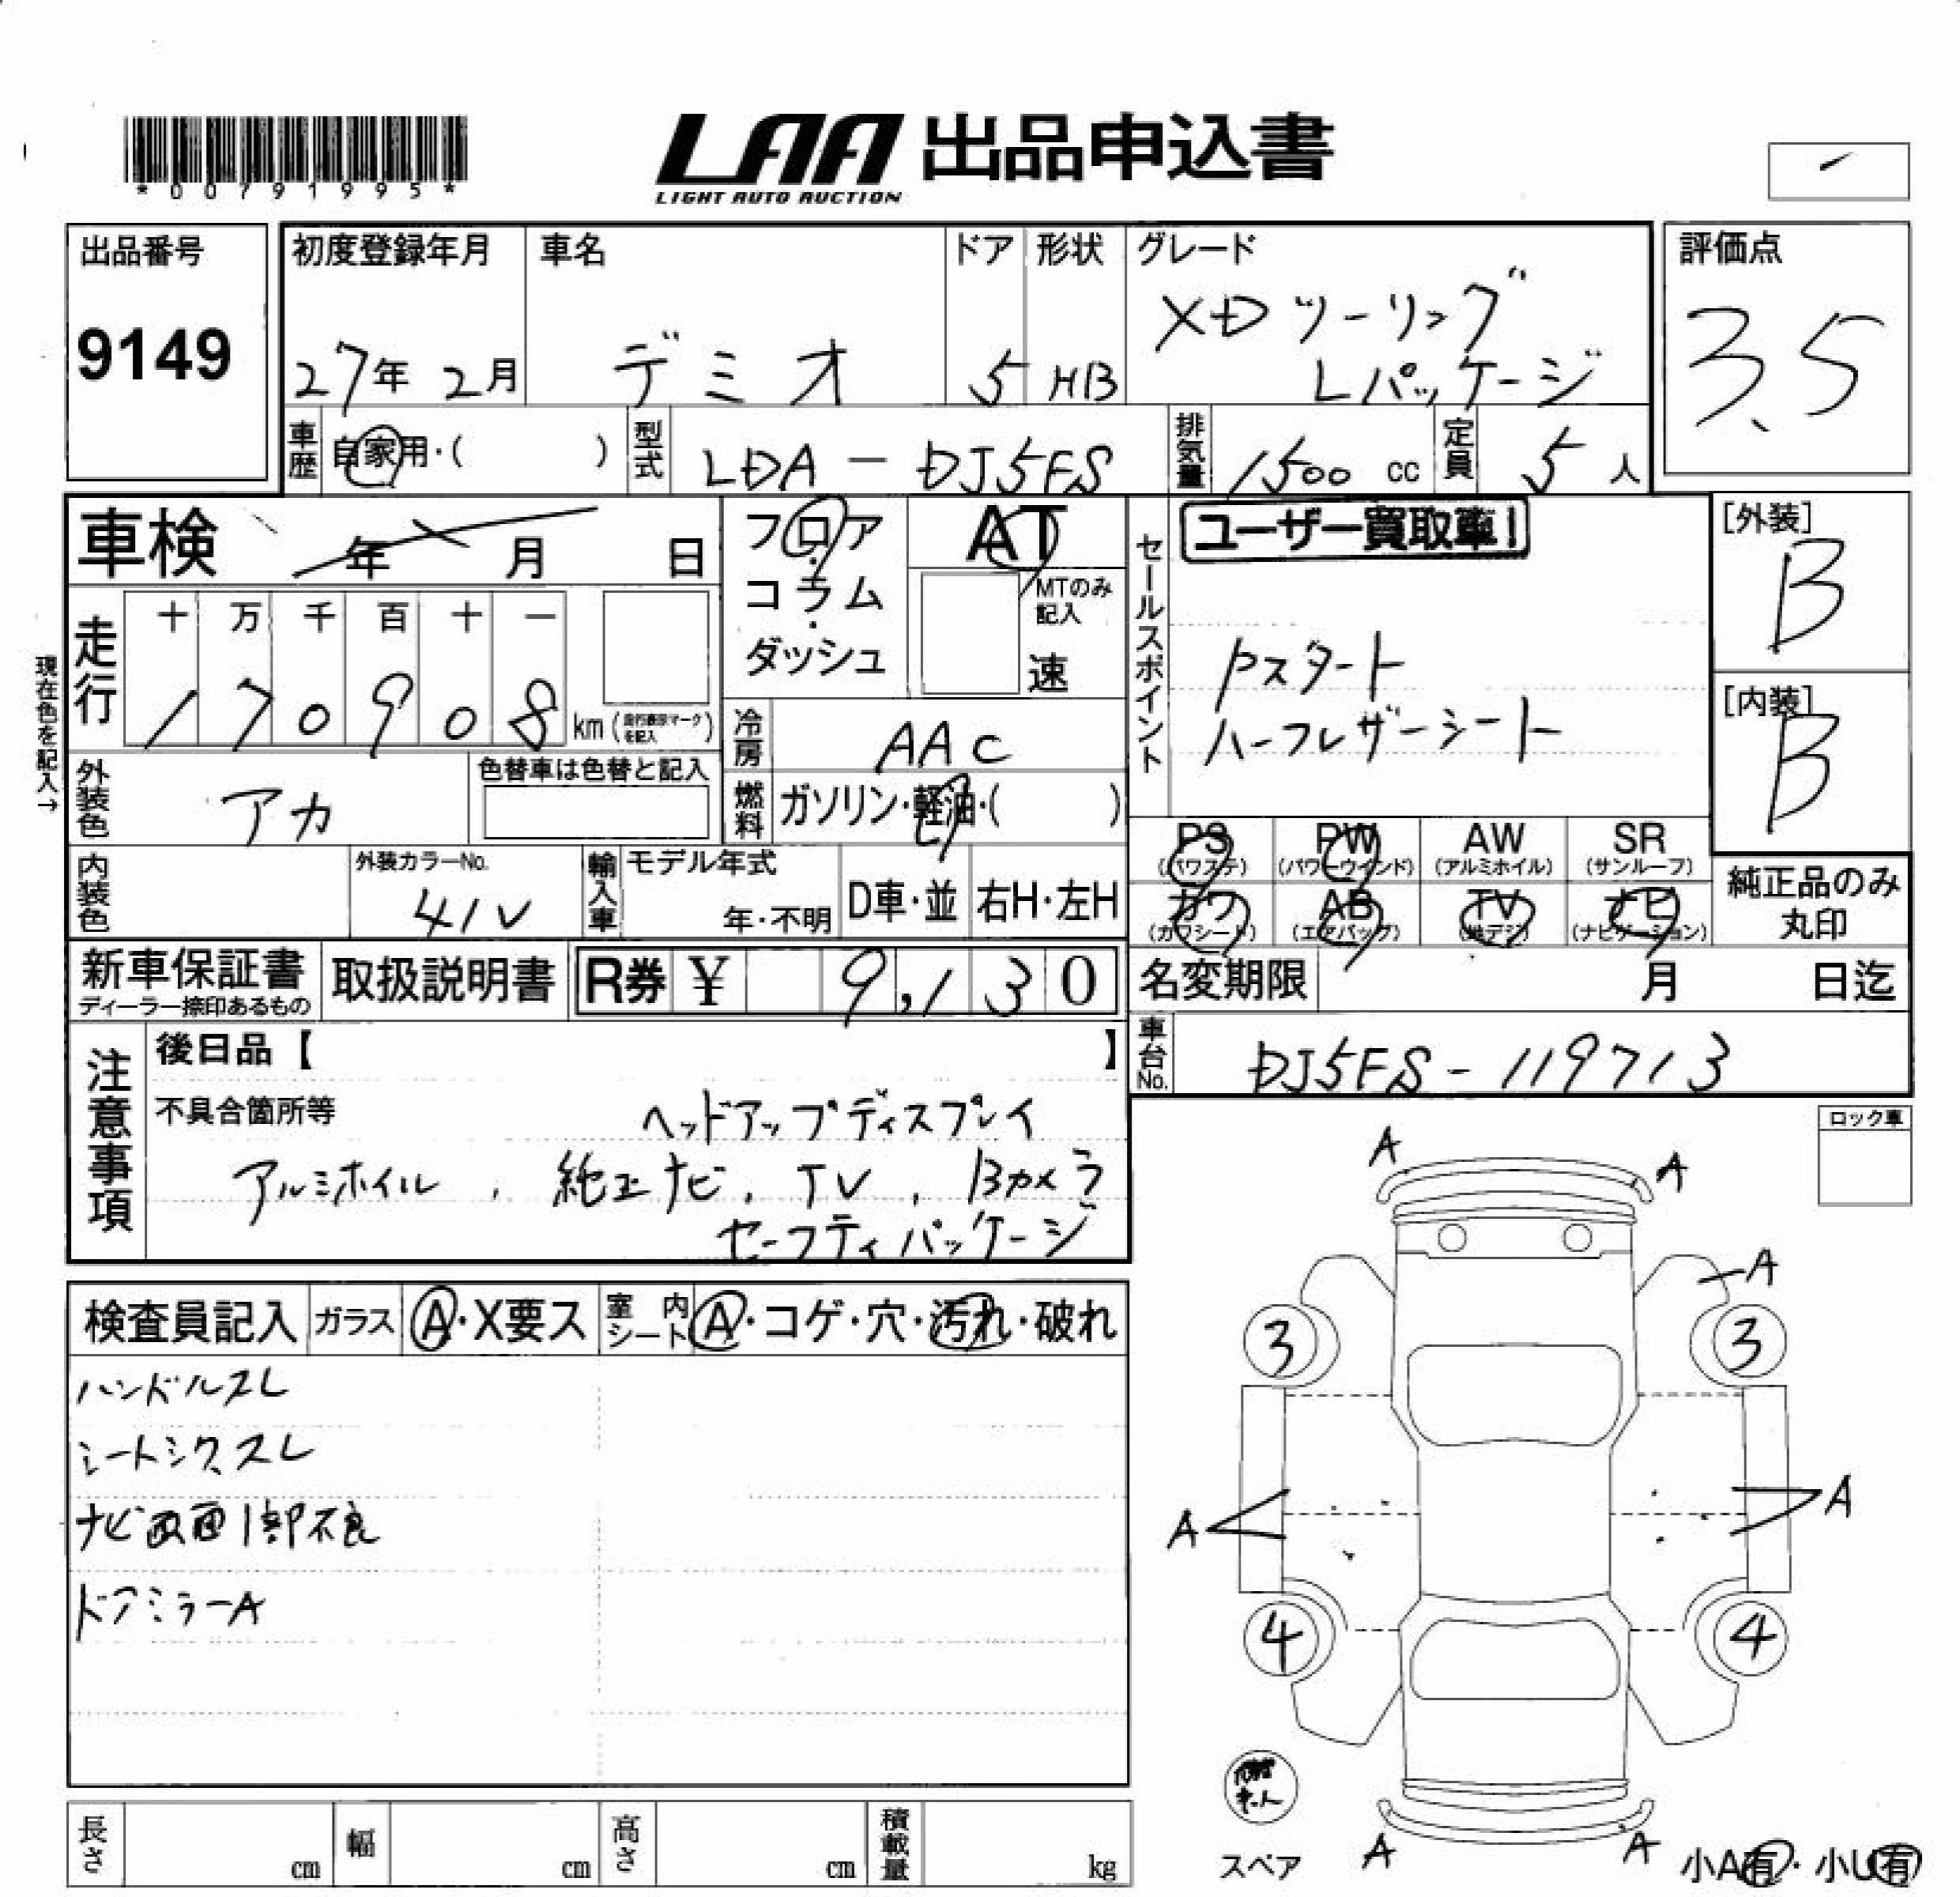 *00791995*
LAA 出品申込書
LIGHT AUTO AUCTION
出品番号
9149
初度登録年月
27年 2月
車名
デミオ
ドア
5
形状
HB
グレード
XD ツーリング
Lパッケージ
評価点
3.5
車歴
自家用・( )
型式
LDA - DJ5FS
排気量
1500 cc
定員
5 人
車検 年 月 日
フロア
コラム
ダッシュ
AT
MTのみ
記入
速
セールスポイント
ユーザー買取車!
Pスタート
ハーフレザーシート
[外装]
B
[内装]
B
現在色を記入→
走行
十 万 千 百 十 一
1 7 0 9 0 8 km (走行表示マークを記入)
冷房
AAC
外装色
アカ
色替車は色替と記入
燃料
ガソリン・軽油・( )
内装色
外装カラーNo.
41V
輸入車
モデル年式
年・不明
D車・並
右H・左H
PS
(パワステ)
PW
(パワーウインド)
AW
(アルミホイル)
SR
(サンルーフ)
カワ
(カワシート)
AB
(エアバッグ)
TV
(地デジ)
ナビ
(ナビゲーション)
純正品のみ
丸印
新車保証書
ディーラー捺印あるもの
取扱説明書
R券 ¥ 9,130
名変期限 月 日迄
車台No.
DJ5FS - 119713
注意事項
後日品【 】
不具合箇所等
ヘッドアップディスプレイ
アルミホイル, 純正ナビ, TV, Bカメラ
セーフティパッケージ
ロック車
検査員記入
ガラス
A・X要ス
室内シート
A・コゲ・穴・汚れ・破れ
ハンドルスレ
シートシワ、スレ
ナビ画面1部不良
ドアミラーA
A
A
A
3
3
A
A
4
4
A
A
スペア
小A有・小U有
長さ cm
幅 cm
高さ cm
積載量 kg